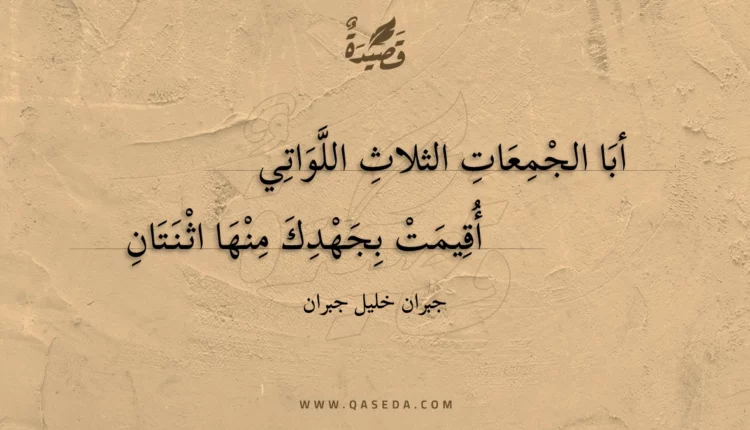 قَصِيدَةٌ
أبَا الجْمِعَاتِ الثلاثِ اللَّوَاتِي
أُقِيمَتْ بِجَهْدِكَ مِنْهَا اثْنَتَانِ
جبران خليل جبران
WWW.QASEDA.COM